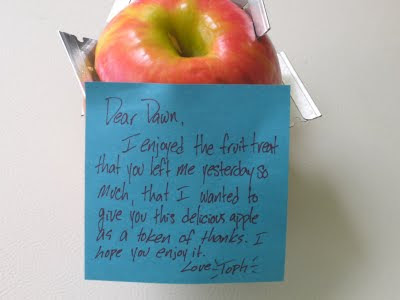 Dear Dawn,
I enjoyed the fruit treat
that you left me yesterday so
much, that I wanted to
give you this delicious apple
as a token of thanks. I
hope you enjoy it.
Love Toph